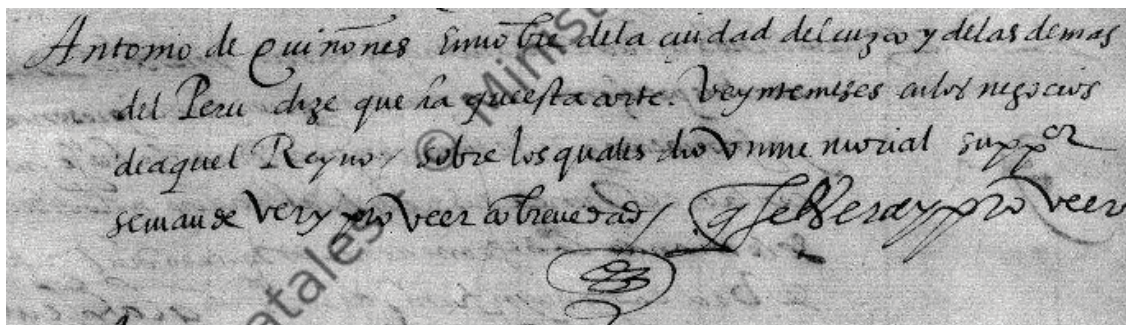 Antonio de Quiñones en nõbre dela ciudad del cuzco y delas demas
del Peru dize que ha questa corte. Veynte meses en los negocios
de aquel Reyno / sobre los quales dio Vn memorial supp.ca
se mande Ver y proVeer cõ brevedad / q se Vera y proveer
© Minist
atales